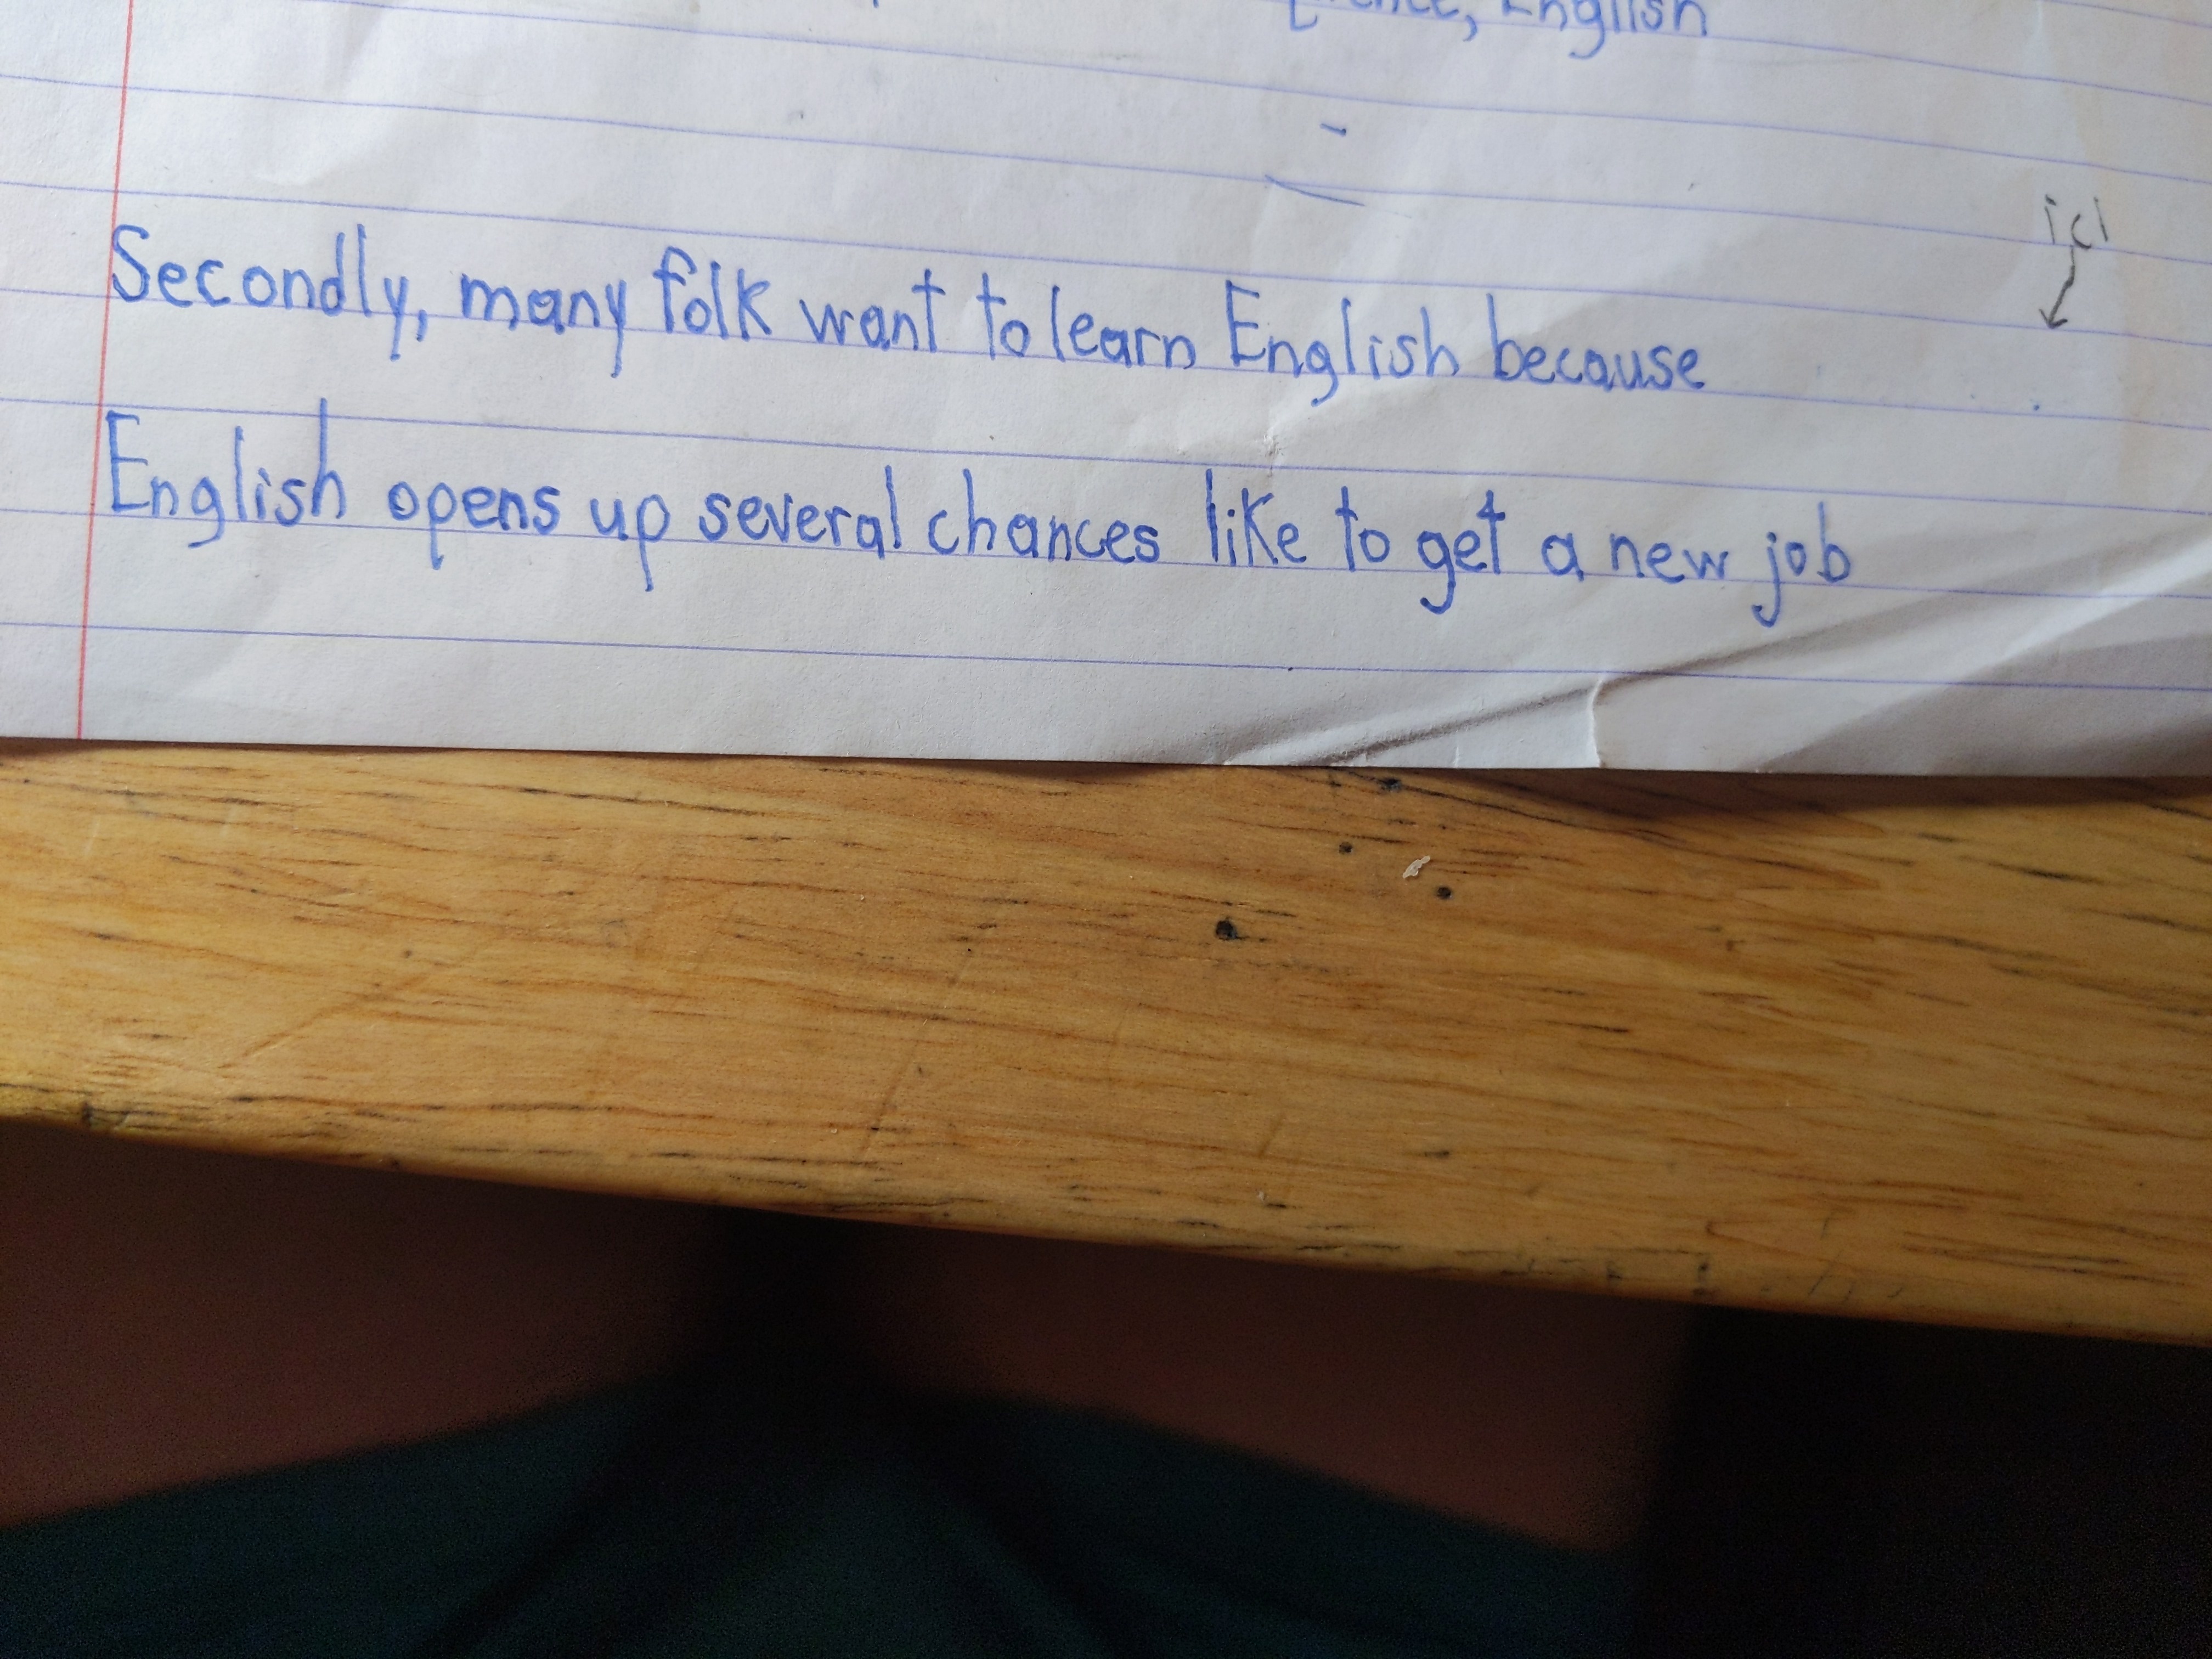 English
ici
Secondly, many folk want to learn English because
English opens up several chances like to get a new job